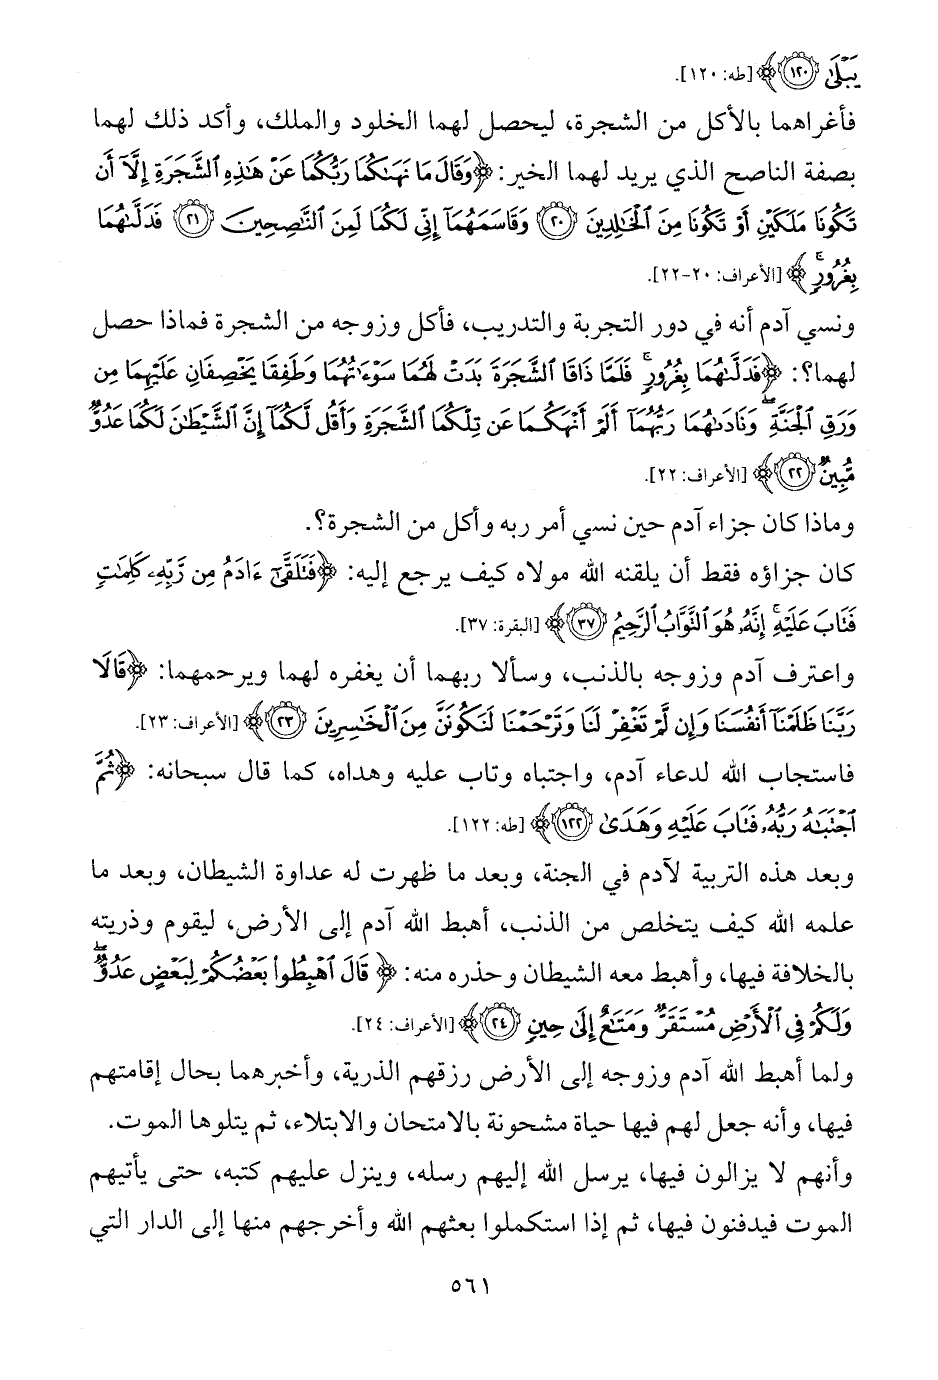 يَبْلَىٰ ﴿١٢٠﴾ [طه: ١٢٠].
فأغراهما بالأكل من الشجرة، ليحصل لهما الخلود والملك، وأكد ذلك لهما
بصفة الناصح الذي يريد لهما الخير: ﴿وَقَالَ مَا نَهَىٰكُمَا رَبُّكُمَا عَنْ هَٰذِهِ ٱلشَّجَرَةِ إِلَّآ أَن
تَكُونَا مَلَكَيْنِ أَوْ تَكُونَا مِنَ ٱلْخَٰلِدِينَ ﴿٢٠﴾ وَقَاسَمَهُمَآ إِنِّي لَكُمَا لَمِنَ ٱلنَّٰصِحِينَ ﴿٢١﴾ فَدَلَّىٰهُمَا
بِغُرُورٍۚ﴾ [الأعراف: ٢٠-٢٢].
ونسي آدم أنه في دور التجربة والتدريب، فأكل وزوجه من الشجرة فماذا حصل
لهما؟: ﴿فَدَلَّىٰهُمَا بِغُرُورٍۚ فَلَمَّا ذَاقَا ٱلشَّجَرَةَ بَدَتْ لَهُمَا سَوْءَٰتُهُمَا وَطَفِقَا يَخْصِفَانِ عَلَيْهِمَا مِن
وَرَقِ ٱلْجَنَّةِۖ وَنَادَىٰهُمَا رَبُّهُمَآ أَلَمْ أَنْهَكُمَا عَن تِلْكُمَا ٱلشَّجَرَةِ وَأَقُل لَّكُمَآ إِنَّ ٱلشَّيْطَٰنَ لَكُمَا عَدُوٌّ
مُّبِينٌ ﴿٢٢﴾ [الأعراف: ٢٢].
وماذا كان جزاء آدم حين نسي أمر ربه وأكل من الشجرة؟.
كان جزاؤه فقط أن يلقنه الله مولاه كيف يرجع إليه: ﴿فَتَلَقَّىٰٓ ءَادَمُ مِن رَّبِّهِۦ كَلِمَٰتٍ
فَتَابَ عَلَيْهِۚ إِنَّهُۥ هُوَ ٱلتَّوَّابُ ٱلرَّحِيمُ ﴿٣٧﴾ [البقرة: ٣٧].
واعترف آدم وزوجه بالذنب، وسألا ربهما أن يغفره لهما ويرحمهما: ﴿قَالَا
رَبَّنَا ظَلَمْنَآ أَنفُسَنَا وَإِن لَّمْ تَغْفِرْ لَنَا وَتَرْحَمْنَا لَنَكُونَنَّ مِنَ ٱلْخَٰسِرِينَ ﴿٢٣﴾ [الأعراف: ٢٣].
فاستجاب الله لدعاء آدم، واجتباه وتاب عليه وهداه، كما قال سبحانه: ﴿ثُمَّ
ٱجْتَبَٰهُ رَبُّهُۥ فَتَابَ عَلَيْهِ وَهَدَىٰ ﴿١٢٢﴾ [طه: ١٢٢].
وبعد هذه التربية لآدم في الجنة، وبعد ما ظهرت له عداوة الشيطان، وبعد ما
علمه الله كيف يتخلص من الذنب، أهبط الله آدم إلى الأرض، ليقوم وذريته
بالخلافة فيها، وأهبط معه الشيطان وحذره منه: ﴿قَالَ ٱهْبِطُوا۟ بَعْضُكُمْ لِبَعْضٍ عَدُوٌّۖ
وَلَكُمْ فِي ٱلْأَرْضِ مُسْتَقَرٌّ وَمَتَٰعٌ إِلَىٰ حِينٍ ﴿٢٤﴾ [الأعراف: ٢٤].
ولما أهبط الله آدم وزوجه إلى الأرض رزقهم الذرية، وأخبرهما بحال إقامتهم
فيها، وأنه جعل لهم فيها حياة مشحونة بالامتحان والابتلاء، ثم يتلوها الموت.
وأنهم لا يزالون فيها، يرسل الله إليهم رسله، وينزل عليهم كتبه، حتى يأتيهم
الموت فيدفنون فيها، ثم إذا استكملوا بعثهم الله وأخرجهم منها إلى الدار التي
٥٦١